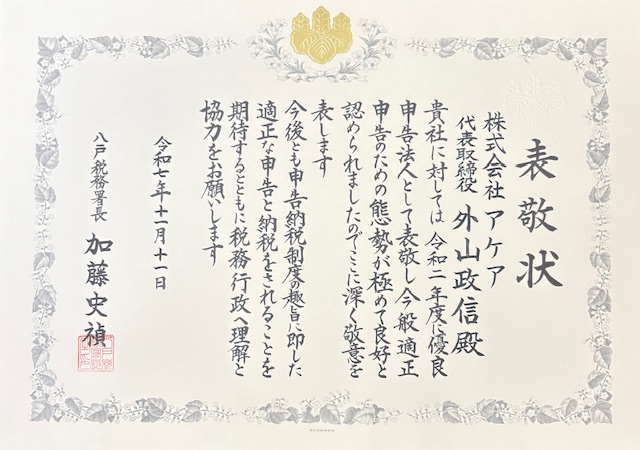 表敬状
株式会社 アケア
代表取締役 外山政信殿
貴社に対しては 令和二年度に優良
申告法人として表敬し今般適正
申告のための態勢が極めて良好と
認められましたのでここに深く敬意を
表します
今後とも申告納税制度の趣旨に即した
適正な申告と納税をされることを
期待するとともに税務行政へ理解と
協力をお願いします
令和七年十一月十一日
八戸税務署長 加藤史禎